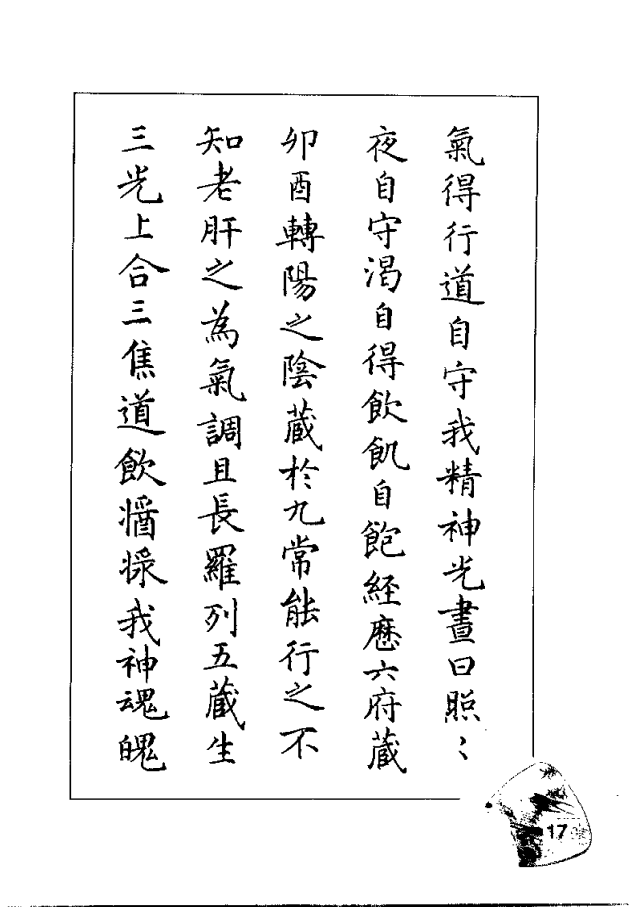 氣得行道自守我精神光晝日照〻
夜自守渴自得飲飢自飽經歷六府藏
卯酉轉陽之陰藏於九常能行之不
知老肝之為氣調且長羅列五藏生
三光上合三焦道飲醬漿我神魂魄
17